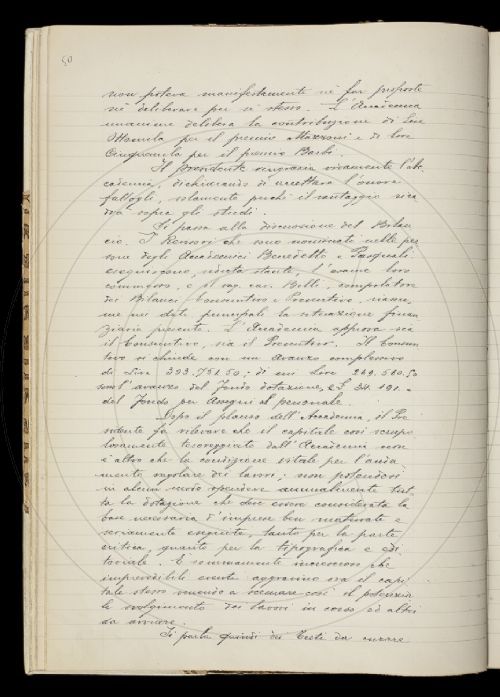 50
non poteva manifestamente nè far proposte
nè deliberare per sè stesso. L'Accademia
unanime delibera la contribuzione di Lire
Ottomila per il premio Mazzoni e di Lire
Cinquemila per il premio Barbi.
Il Presidente ringrazia vivamente l'Ac-
cademia, dichiarando di accettare l'onore
fattogli, solamente perchè il vantaggio rica-
da sopra gli studi.
Si passa alla discussione del Bilan-
cio. I Revisori che sono nominati nelle per-
sone degli Accademici Benedetto e Pasquali
eseguiscono, seduta stante, l'esame loro
commesso, e il rag. cav. Belli, compilatore
dei Bilanci Consuntivo e Preventivo, riassu-
me nei dati principali la situazione finan-
ziaria presente. L'Accademia approva sia
il Consuntivo, sia il Preventivo. Il Consun-
tivo si chiude con un avanzo complessivo
di Lire 303.751.50; di cui Lire 269.560.50
sono l'avanzo del Fondo dotazione, e L. 34.191.=
del Fondo per Assegni al personale.
Dopo il plauso dell'Accademia, il Pre-
sidente fa rilevare che il capitale così scrupo-
losamente tesoreggiato dall'Accademia non
è altro che la condizione vitale per l'anda-
mento regolare dei lavori; non potendosi
in alcun modo spendere annualmente tut-
ta la dotazione che deve essere considerata la
base necessaria d'imprese ben maturate e
seriamente eseguite, tanto per la parte
critica, quanto per la tipografica e edi-
toriale. È sommamente increscioso che
imprevedibili eventi aggravino sia il capi-
tale stesso venendo a scemare così il potenzia
le svolgimento dei lavori in corso ed altri
da avviare.
Si parla quindi dei Testi da curare